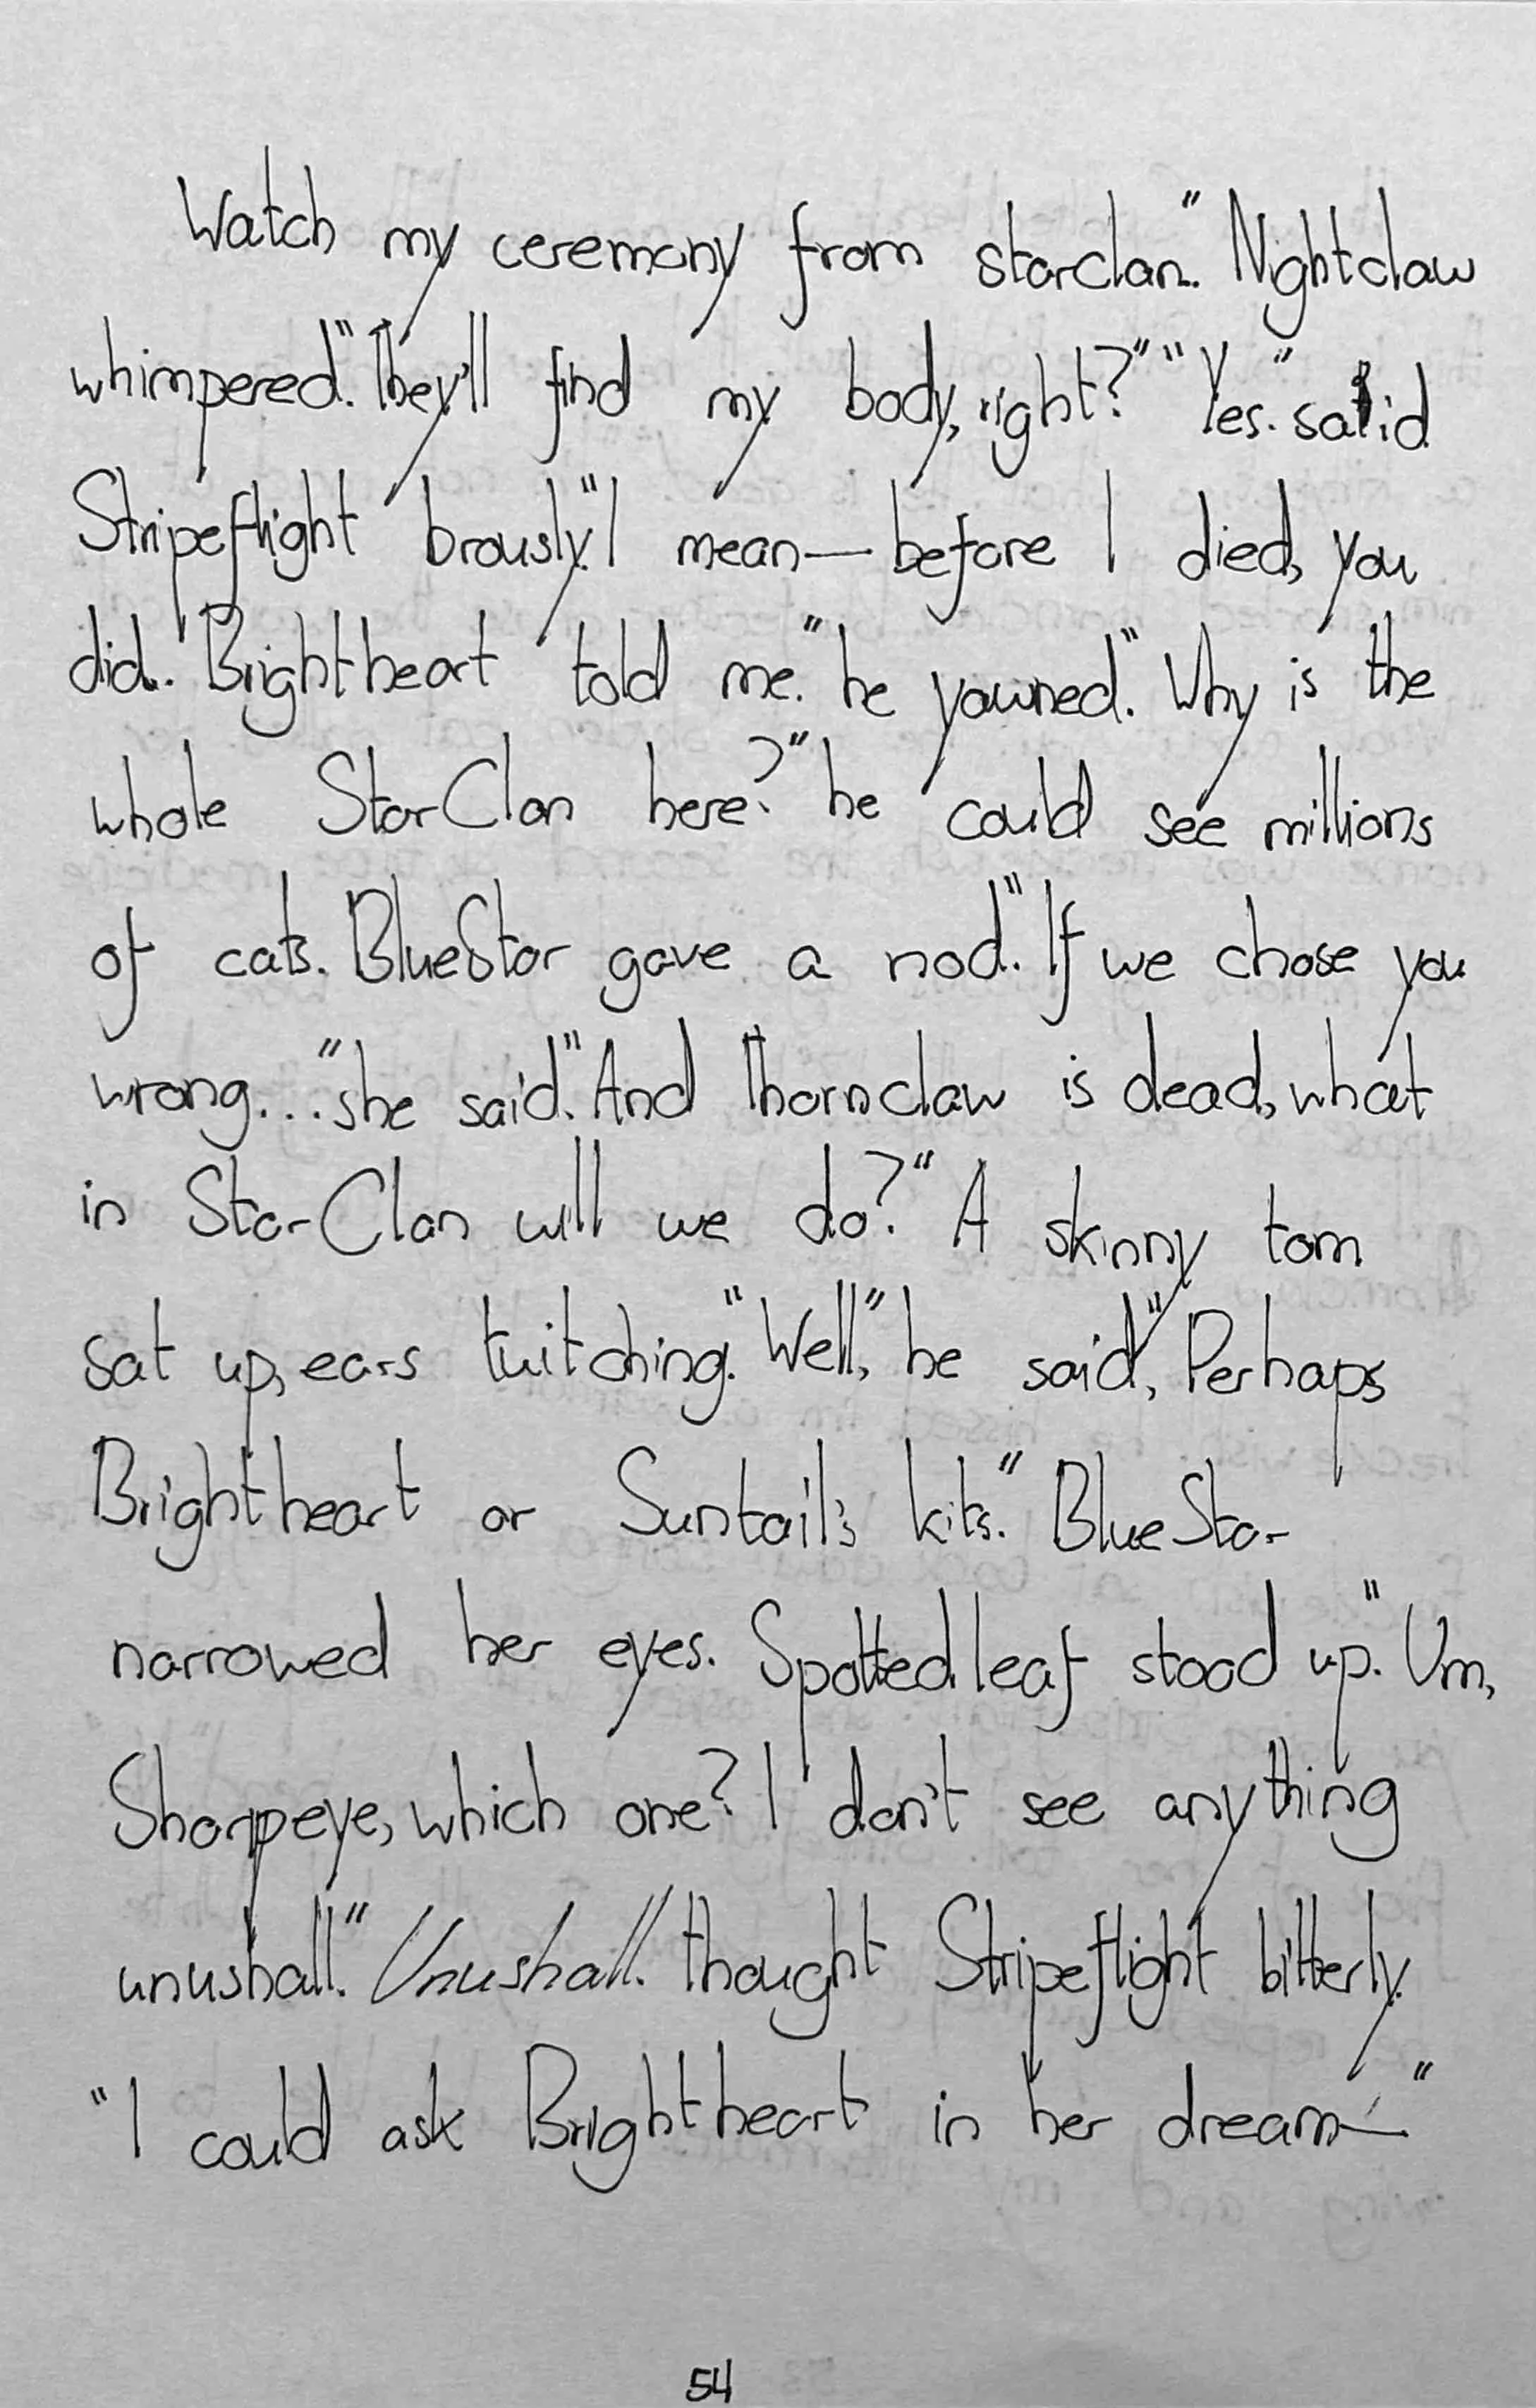 Watch my ceremony from starclan." Nightclaw
whimpered."They'll find my body, right?" "Yes." said
Stripeflight brously."I mean—before I died, you
did." Brightheart told me." he yawned." Why is the
whole StarClan here?" he could see millions
of cats. BlueStar gave a nod."If we chose you
wrong..." she said."And Thornclaw is dead, what
in StarClan will we do?" A skinny tom
sat up, ears twitching."Well," he said", Perhaps
Brightheart or Suntail's kits." BlueStar
narrowed her eyes. Spottedleaf stood up."Um,
Sharpeye, which one? I don't see anything
unushall." Unushall. thought Stripeflight bitterly.
"I could ask Brightheart in her dream—"
54